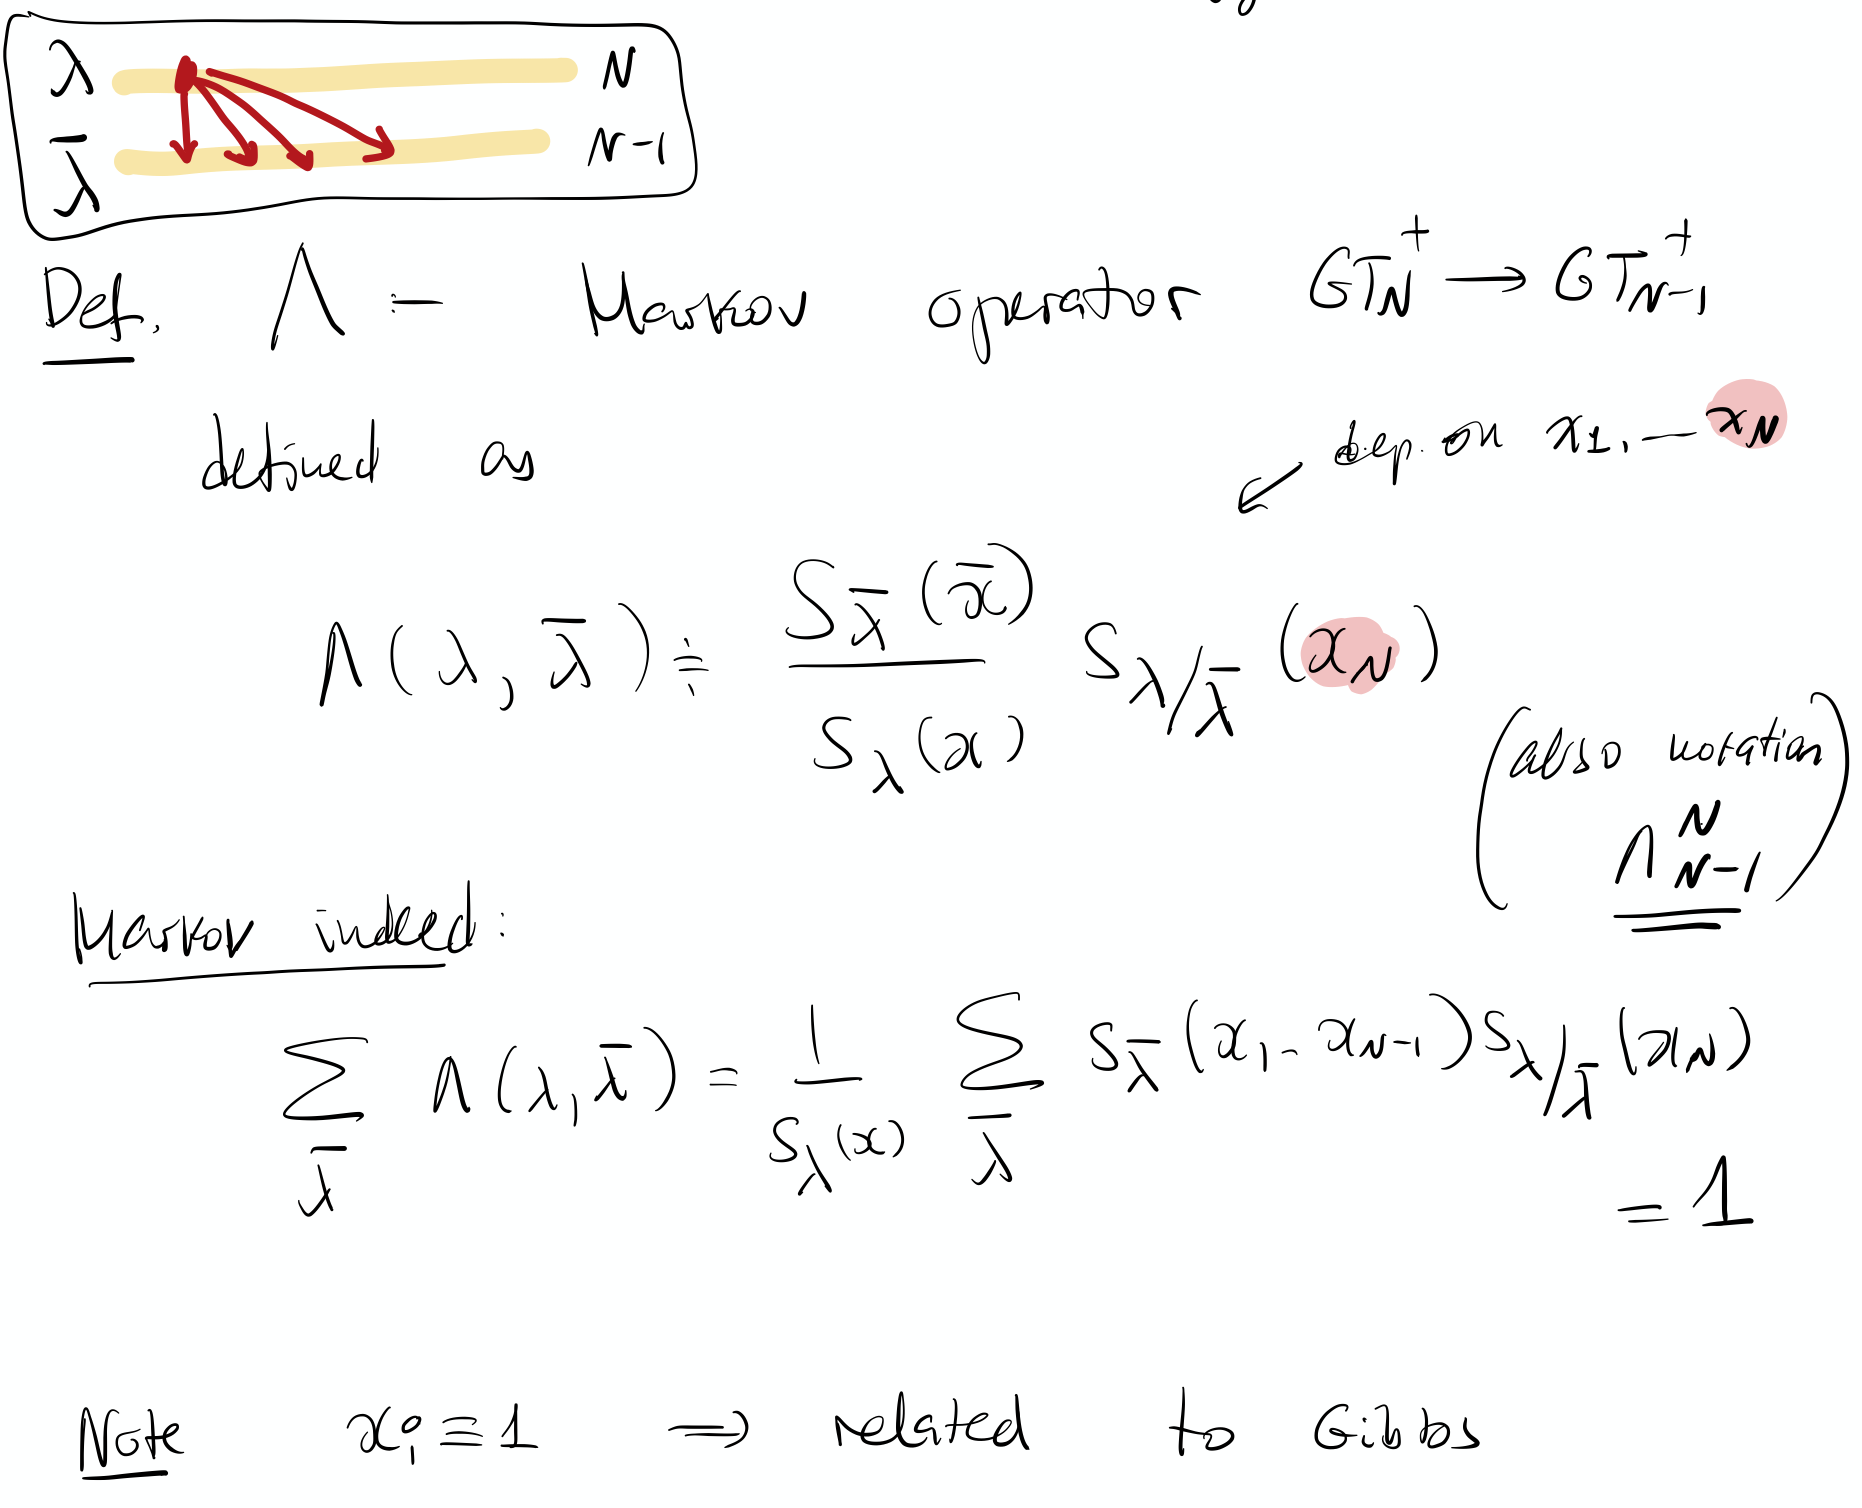 λ N
λ̄ N-1
Def. Λ - Markov operator GT_N^+ → GT_{N-1}^+
defined as
↙ dep. on x_1, — x_N
Λ(λ, λ̄) ≑ \frac{S_{λ̄}(x̄)}{S_λ(x)} S_{λ/λ̄}(x_N)
(also notation
Λ^N_{N-1})
Markov indeed:
∑_{λ̄} Λ(λ, λ̄) = \frac{1}{S_λ(x)} ∑_{λ̄} S_{λ̄}(x_1 .. x_{N-1}) S_{λ/λ̄}(x_N)
= 1
Note x_i ≡ 1 ⇒ related to Gibbs